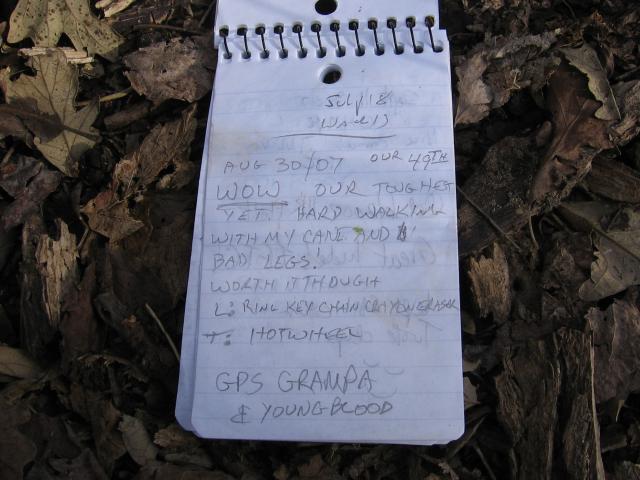 July 18
AUG 30/07 OUR 49TH
WOW OUR TOUGHEST
YET! HARD WALKING
WITH MY CANE AND
BAD LEGS!
WORTH IT THOUGH
L: RING KEY CHAIN CRAYON ERASER
T: HOTWHEEL
GPS GRAMPA
& YOUNGBLOOD